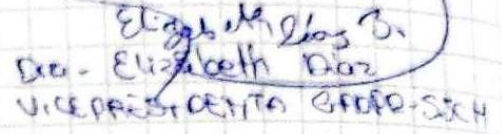 Elizabeth Díaz B.
Dra. Elizabeth Díaz
VICEPRESIDENTA